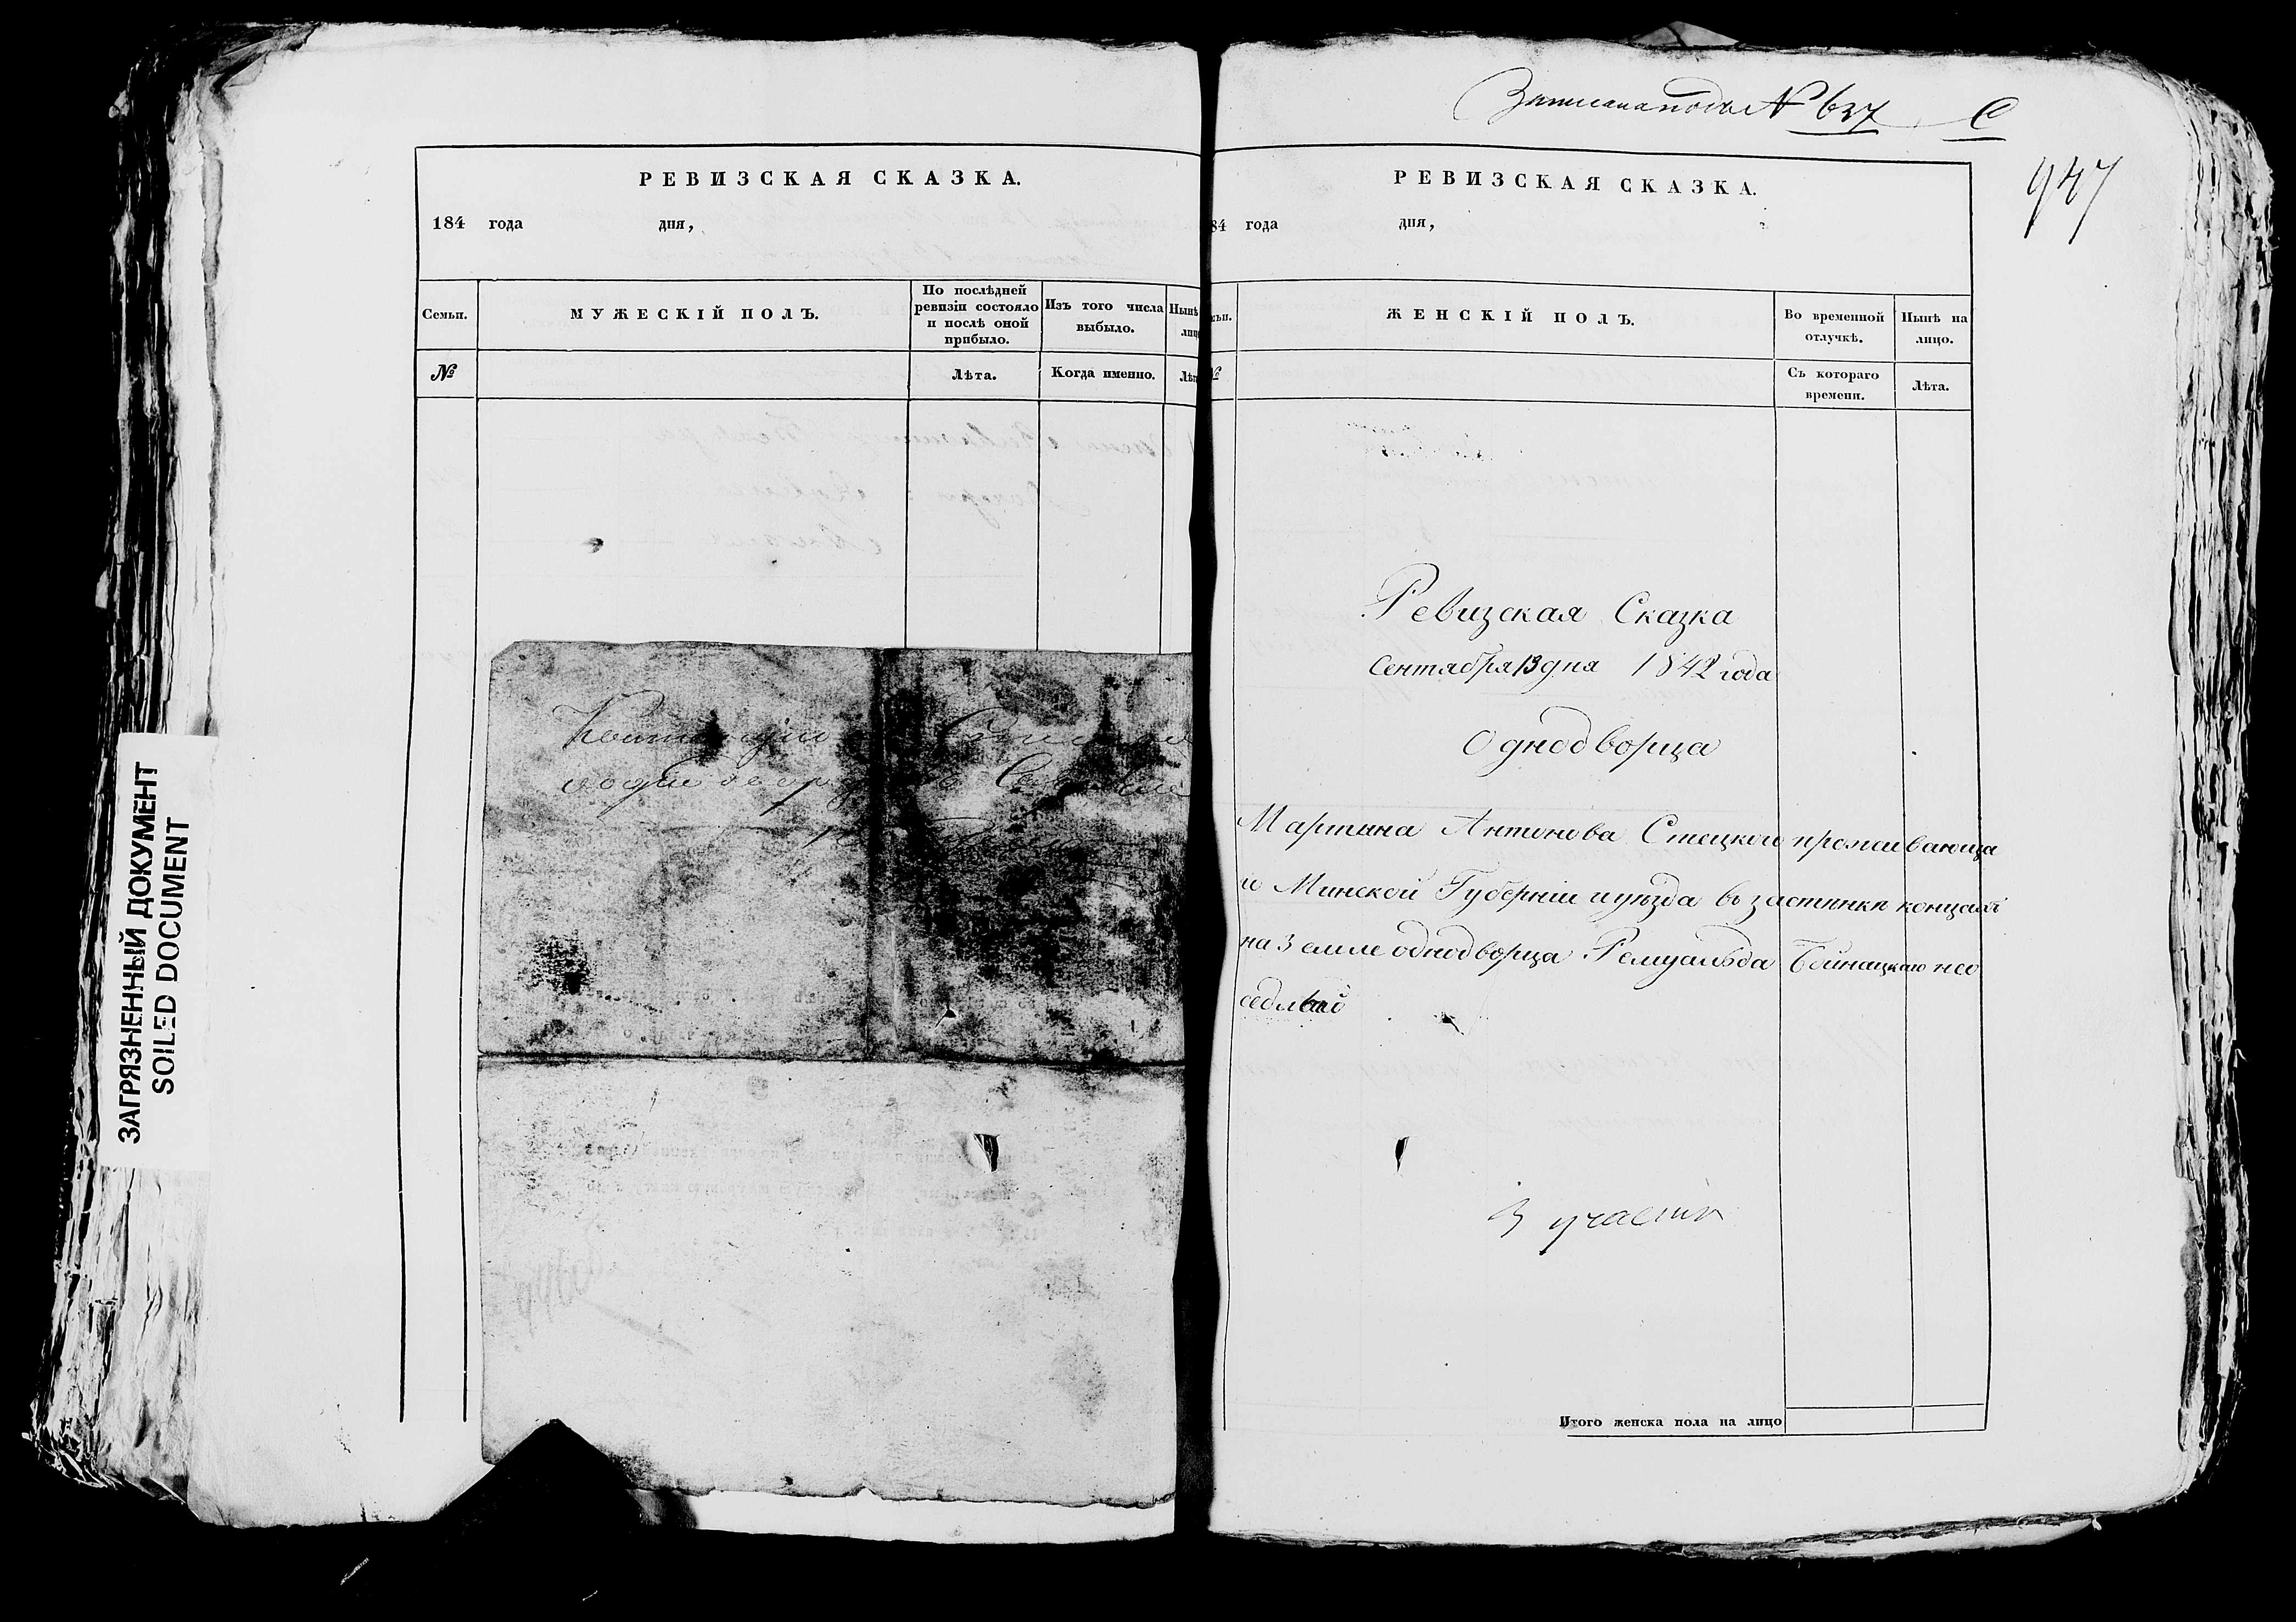 ЗАГРЯЗНЕННЫЙ ДОКУМЕНТ
SOILED DOCUMENT
РЕВИЗСКАЯ СКАЗКА.
184 года дня,
Семьи.
МУЖЕСКІЙ ПОЛЪ.
По послѣдней
ревизіи состояло
и послѣ оной
прибыло.
Изъ того числа
выбыло.
Нынѣ
лиц
№
Лѣта.
Когда именно.
Лѣт
Записана подъ № 637 С
947
РЕВИЗСКАЯ СКАЗКА.
84 года дня,
ьи.
ЖЕНСКІЙ ПОЛЪ.
Во временной
отлучкѣ.
Нынѣ на
лицо.
№
Съ котораго
времени.
Лѣта.
Ревизская Сказка
Сентября 13 дня 1842 года
Однодворца
Мартина Антонова Стецкого проживающа
го Минской Губерніи и уѣзда въ застѣнкѣ
на Земле однодворца Ромуальда нео
седлый
3 участка
Итого женска пола на лицо